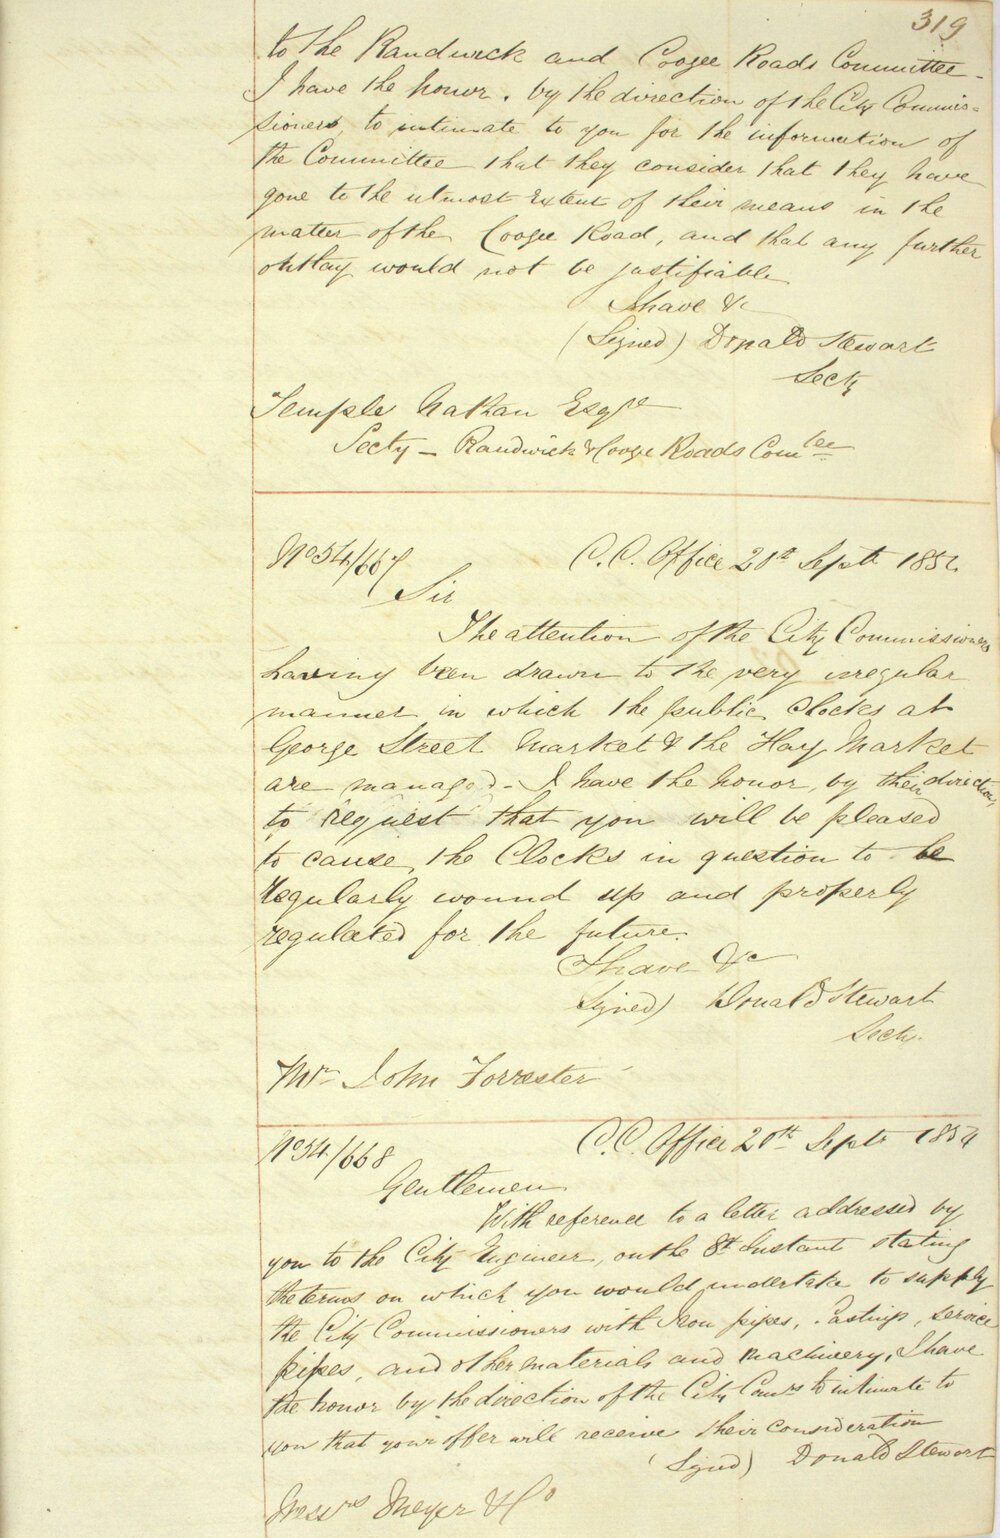 319
to the Randwick and Coogee Roads Committee -
I have the honor, by the direction of the City Commis=
sioners, to intimate to you for the information of
the Committee that they consider that they have
gone to the utmost Extent of their means in the
matter of the Coogee Road, and that any further
outlay would not be justifiable
I have &c
(Signed) Donald Stewart
Secty
Temple Nathan Esqre
Secty - Randwick & Coogee Roads Comtee
No 54/667
C. C. Office 20th Septr 1854
Sir
The attention of the City Commissioners
having been drawn to the very irregular
manner in which the public Clocks at
George Street Market & the Hay Market
are managed - I have the honor, by their direction,
to request that you will be pleased
to cause, the Clocks in question to be
regularly wound up and properly
regulated for the future.
I have &c
Signed) Donald Stewart
Secty.
Mr John Forrester
No 54/668
C. C. Office 20th Septr 1854
Gentlemen
With reference to a letter addressed by
you to the City Engineer, on the 8th Instant stating
the terms on which you would undertake to supply
the City Commissioners with Iron pipes, Castings, service
pipes, and other materials and machinery, I have
the honor by the direction of the City Comrs to intimate to
you that your offer will receive their consideration
(Signed) Donald Stewart
Messrs Meyer & Co